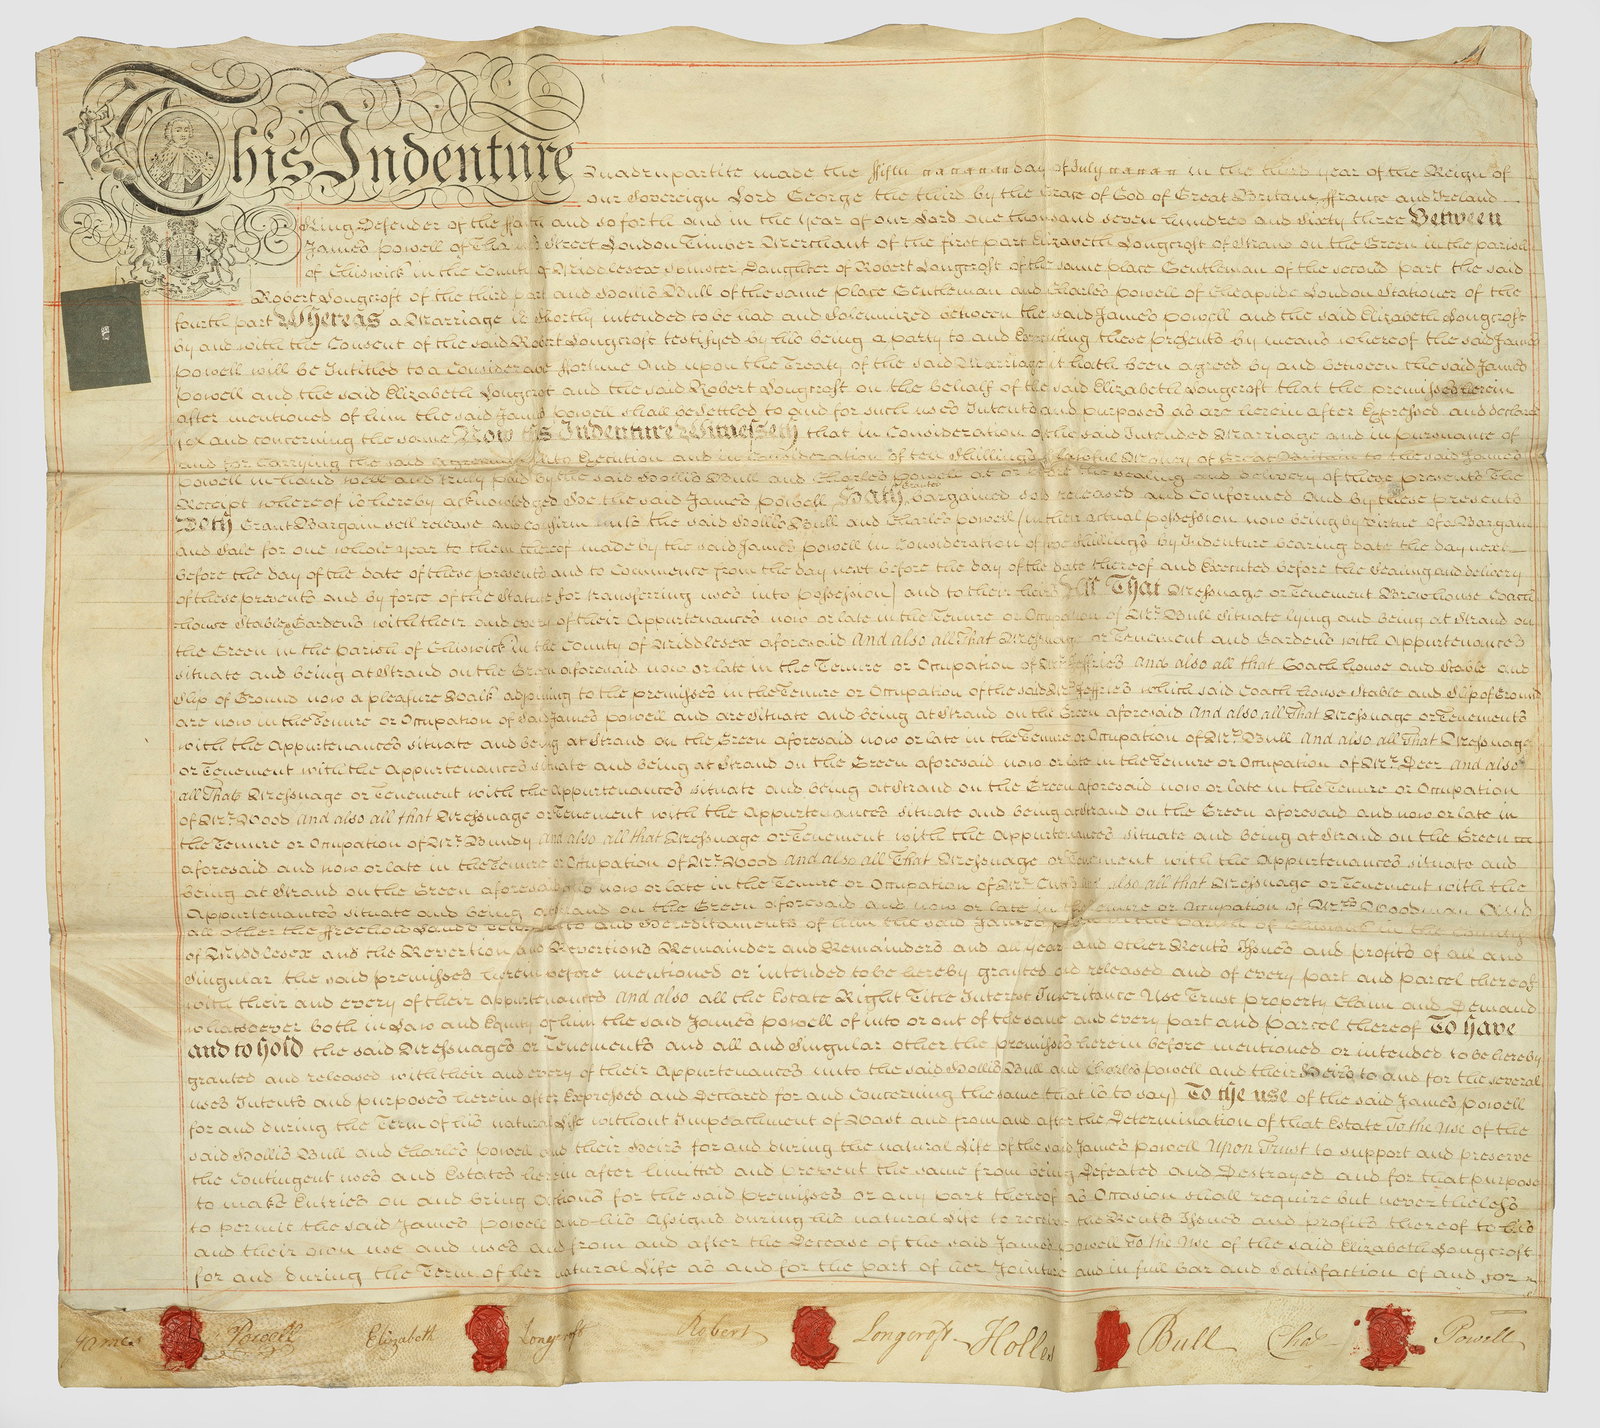 This Indenture Quadrupartite made the ffifth day of July in the third year of the Reign of
our Sovereign Lord George the third by the Grace of God of Great Britain ffrance and Ireland
King Defender of the ffaith and so forth and in the Year of our Lord one thousand seven hundred and sixty three Between
James Powell of Thames Street London Timber Merchant of the first part Elizabeth Longcroft of Strand on the Green in the parish
of Chiswick in the County of Middlesex Spinster Daughter of Robert Longcroft of the same place Gentleman of the second part the said
Robert Longcroft of the third part and Hollis Bull of the same place Gentleman and Charles Powell of Cheapside London Stationer of the
fourth part Whereas a Marriage is shortly intended to be had and Solemnized between the said James Powell and the said Elizabeth Longcroft
by and with the Consent of the said Robert Longcroft testifyed by his being a party to and Executing these presents by means whereof the said James
Powell will be Intitled to a Considerable ffortune And upon the Treaty of the said Marriage it hath been agreed by and between the said James
Powell and the said Elizabeth Longcroft and the said Robert Longcroft on the behalf of the said Elizabeth Longcroft that the premisses herein
after mentioned of him the said James Powell shall be settled to and for such uses Intents and purposes as are herein after Expressed and declared
of and concerning the same Now this Indenture Witnesseth that in Consideration of the said Intended Marriage and in pursuance of
and for Carrying the said Agreement into Execution and in Consideration of ten Shillings of lawful Money of Great Britain to the said James
Powell in hand well and truly paid by the said Hollis Bull and Charles Powell at or before the sealing and delivery of these presents The
Receipt whereof is hereby acknowledged He the said James Powell Hath granted bargained sold released and Confirmed And by these presents
Doth Grant Bargain sell release and confirm unto the said Hollis Bull and Charles Powell (in their actual possession now being by virtue of a Bargain
and Sale for one whole year to them thereof made by the said James Powell in Consideration of five Shillings by Indenture bearing date the day next
before the day of the date of these presents and to Commence from the day next before the day of the date thereof and Executed before the Sealing and delivery
of these presents and by force of the Statute for transferring uses into possession) and to their heirs All That Messuage or Tenement Brewhouse Coach
house Stables Gardens with their and every of their Appurtenances now or late in the Tenure or Occupation of Mr. Bull Situate lying and being at Strand on
the Green in the parish of Chiswick in the County of Middlesex aforesaid And also all That Messuage or Tenement and Gardens with Appurtenances
situate and being at Strand on the Green aforesaid now or late in the Tenure or Occupation of Mr. Jeffries And also all that Coach house and Stable and
Slip of Ground now a pleasure Walk adjoining to the premisses in the Tenure or Occupation of the said Mr. Jeffries which said Coach house Stable and Slip of Ground
are now in the Tenure or Occupation of said James Powell and are Situate and being at Strand on the Green aforesaid And also all That Messuage or Tenements
with the Appurtenances situate and being at Strand on the Green aforesaid now or late in the Tenure or Occupation of Mr. Bull And also all That Messuage
or Tenement with the Appurtenances situate and being at Strand on the Green aforesaid now or late in the Tenure or Occupation of Mr. Deer And also
all That Messuage or Tenement with the Appurtenances situate and being at Strand on the Green aforesaid now or late in the Tenure or Occupation
of Mr. Wood And also all that Messuage or Tenement with the Appurtenances situate and being at Strand on the Green aforesaid and now or late in
the Tenure or Occupation of Mr. Bundy And also all that Messuage or Tenement with the Appurtenances situate and being at Strand on the Green
aforesaid and now or late in the Tenure or Occupation of Mr. Wood And also all That Messuage or Tenement with the Appurtenances situate and
being at Strand on the Green aforesaid now or late in the Tenure or Occupation of Mr. also all that Messuage or Tenement with the
Appurtenances situate and being at Strand on the Green aforesaid and now or late in the Tenure or Occupation of Mrs. Woodman And
all other the ffreehold Lands to and Hereditaments of him the said James in the Parish of Chiswick in the County
of Middlesex and the Revertion and Revertions Remainder and Remainders and all year and other Rents Issues and profits of all and
Singular the said premisses herein before mentioned or intended to be hereby granted and released and of every part and parcel thereof
with their and every of their Appurtenances And also all the Estate Right Title Interest Inheritance Use Trust property Claim and Demand
whatsoever both in Law and Equity of him the said James Powell of into or out of the same and every part and Parcel thereof To have
and to hold the said Messuages or Tenements and all and Singular other the premisses herein before mentioned or intended to be hereby
granted and released with their and every of their Appurtenances unto the said Hollis Bull and Charles Powell and their Heirs to and for the several
uses Intents and purposes herein after Expressed and Declared for and Concerning the same that is to say) To the use of the said James Powell
for and during the Term of his natural Life without Impeachment of Wast and from and after the Determination of that Estate To the Use of the
said Hollis Bull and Charles Powell and their Heirs for and during the natural Life of the said James Powell Upon Trust to support and preserve
the Contingent uses and Estates herein after limitted and Prevent the same from being Defeated and Destroyed and for that purpose
to make Entries on and bring Actions for the said premisses or any part thereof as Occasion shall require but nevertheless
to permit the said James Powell and his Assigns during his natural Life to receive the Rents Issues and profits thereof to his
and their own use and uses And from and after the Decease of the said James Powell To the Use of the said Elizabeth Longcroft
for and during the Term of her natural Life as and for the part of her Jointure and in full Bar and Satisfaction of and for
James Powell Elizabeth Longcroft Robert Longcroft Holles Bull Chas Powell